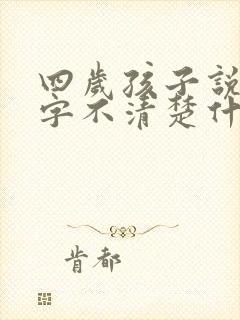 四歲孩子說
字不清楚什
肯都